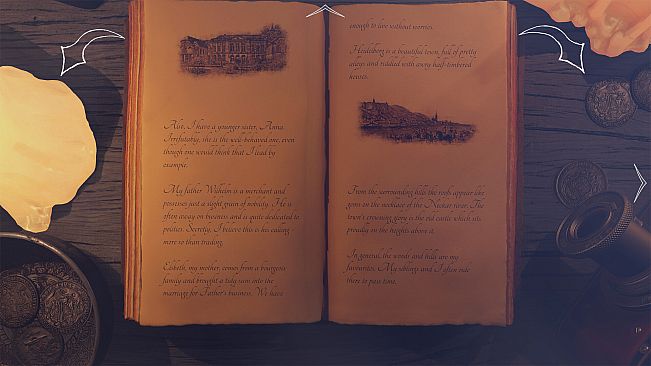 Also, I have a younger sister, Anna.
Irrefutably, she is the well-behaved one, even
though one would think that I lead by
example.
My father Wilhelm is a merchant and
possesses just a slight grain of nobility. He is
often away on business and is quite dedicated to
politics. Secretly, I believe this is his calling
more so than trading.
Elsbeth, my mother, comes from a bourgeois
family and brought a tidy sum into the
marriage for Father's business. We have
enough to live without worries.
Heidelberg is a beautiful town, full of pretty
alleys and riddled with awry half-timbered
houses.
From the surrounding hills the roofs appear like
gems on the necklace of the Neckar river. The
town's crowning glory is the old castle which sits
proudly on the heights above it.
In general, the woods and hills are my
favourites. My siblings and I often ride
there to pass time.